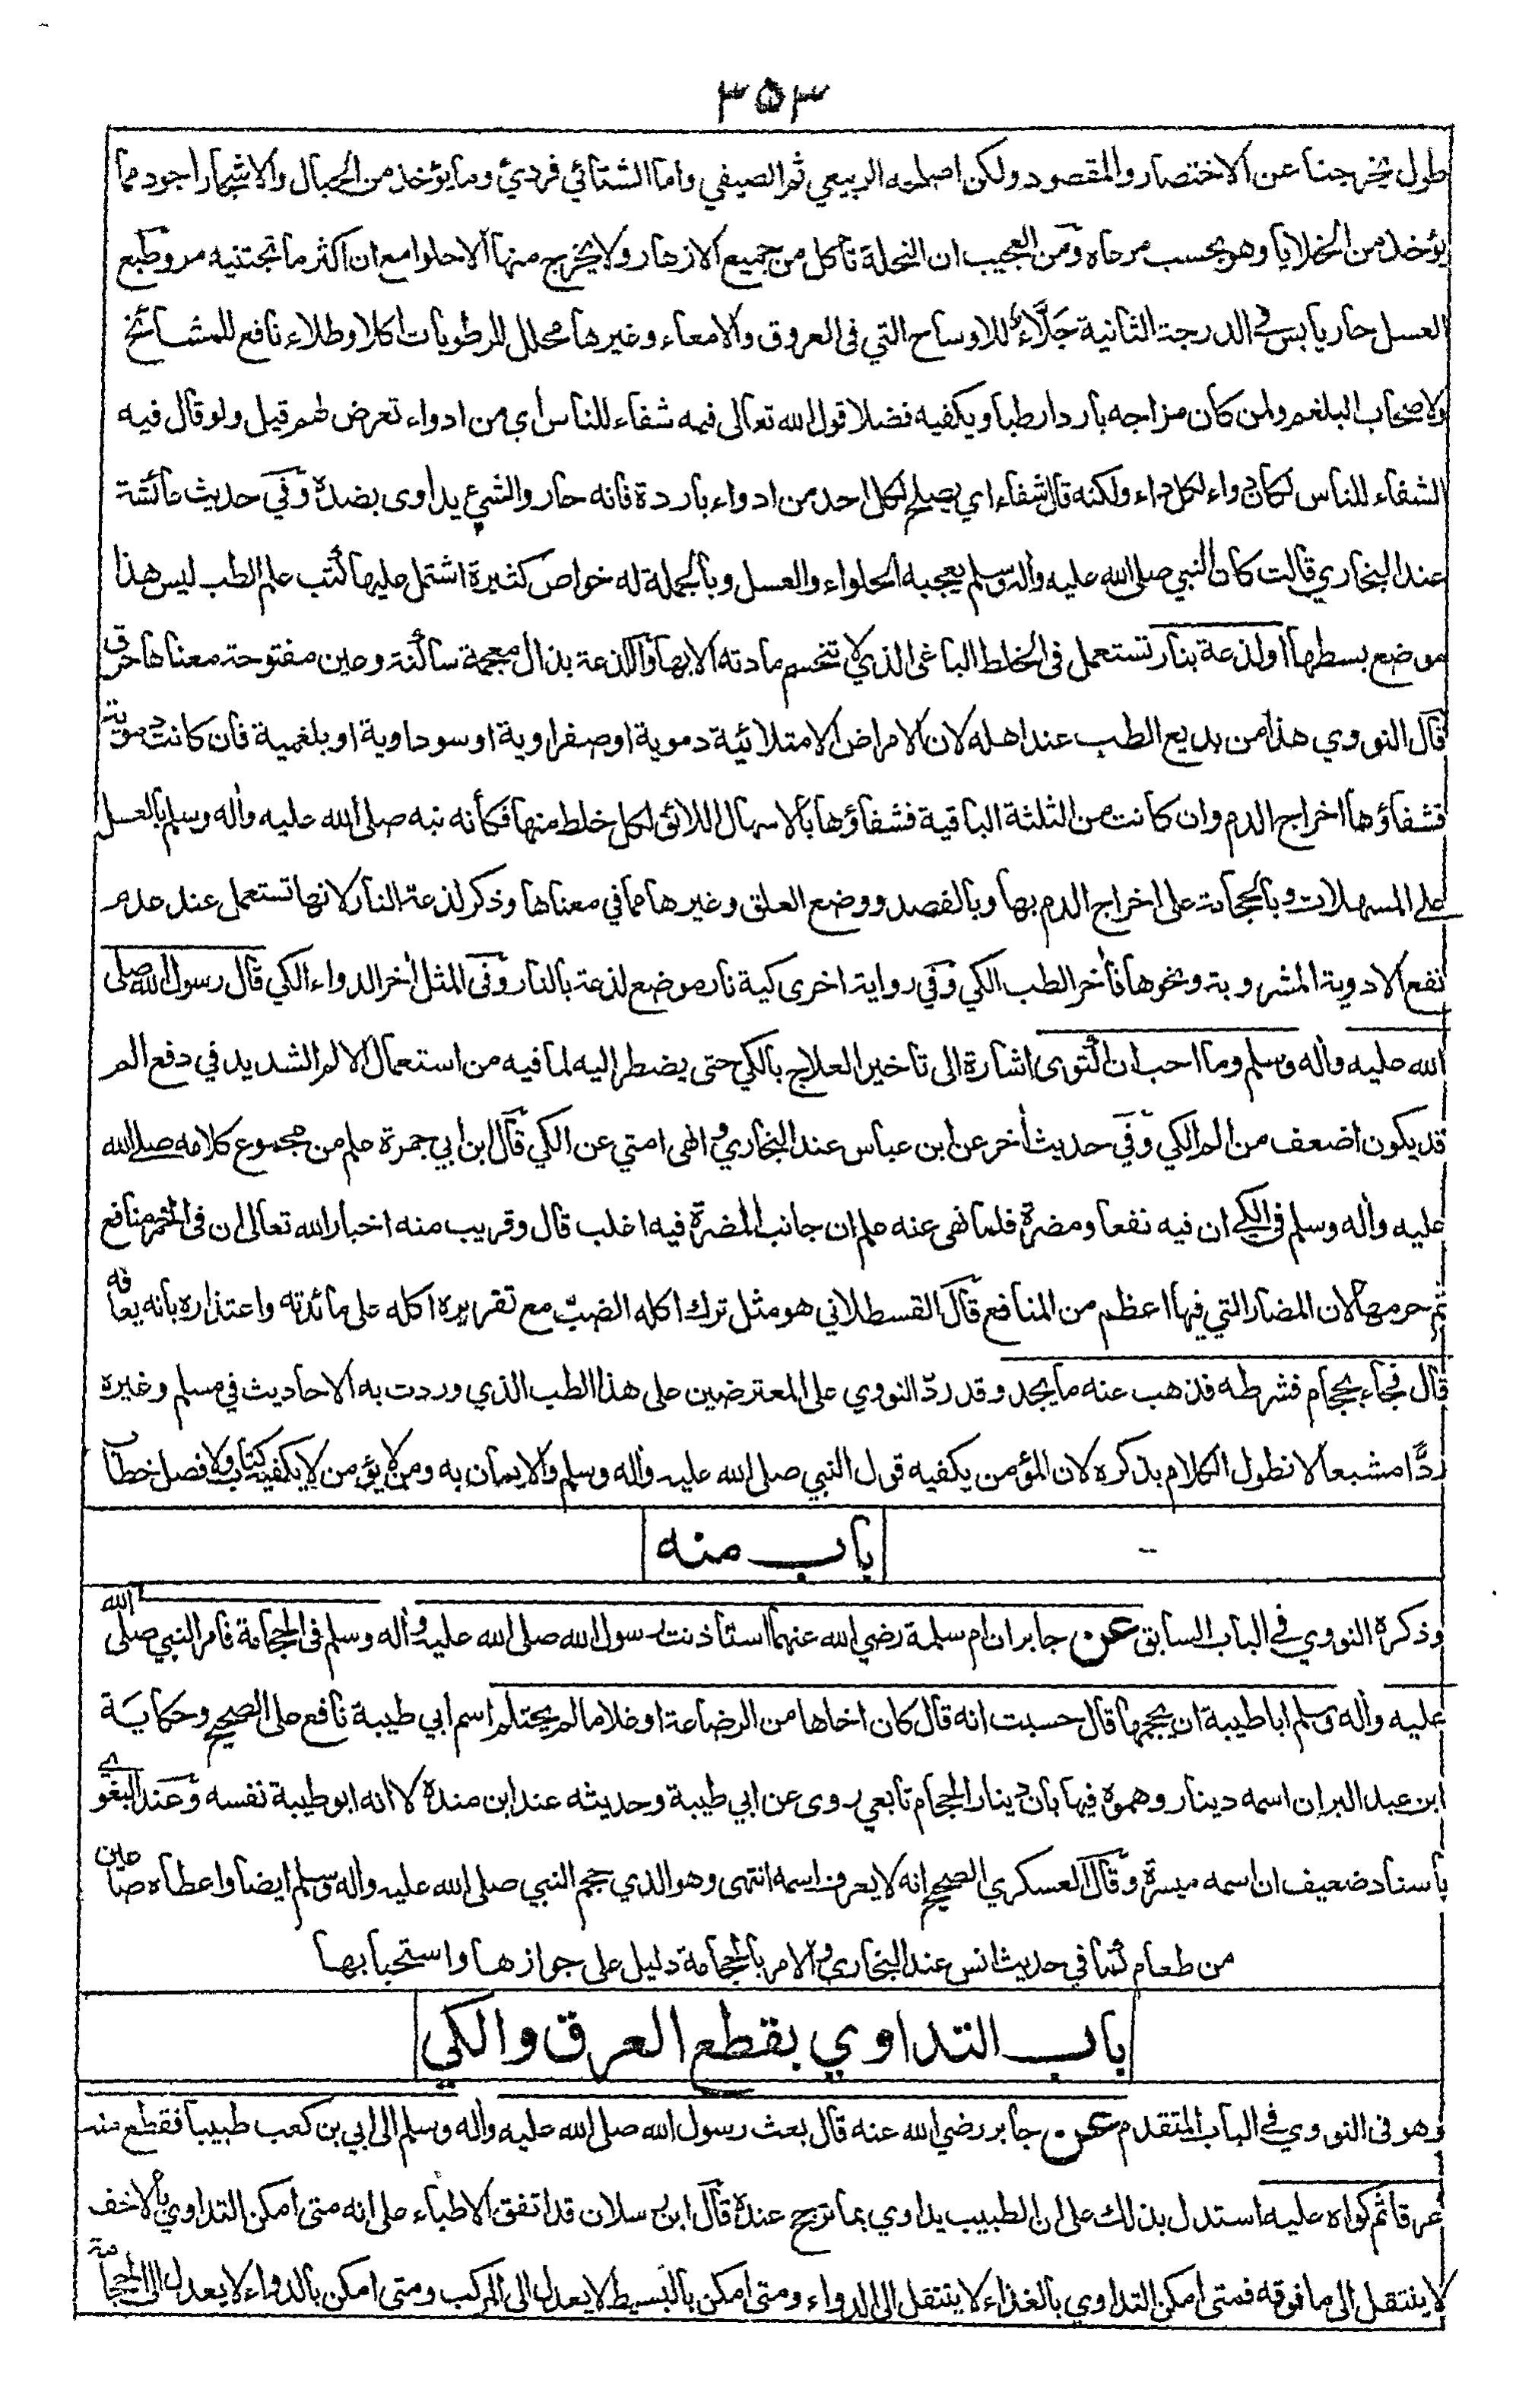 ٣٥٣
طول يخرجنا عن الاختصار والمقصود ولكن اصلحه الربيعي ثم الصيفي واما الشتائي فردئ وما يؤخذ من الجبال والاشجار اجود مما
يؤخذ من الخلايا وهو بحسب مرعاه ومن العجيب ان النحلة تأكل من جميع الازهار ولا يخرج منها الا حلوا مع ان اكثر ما تجتنيه مر وطبع
العسل حار يابس في الدرجة الثانية جَلَّاءٌ للاوساخ التي في العروق والامعاء وغيرها محلل للرطوبات اكلا وطلاء نافع للمشائخ
ولاصحاب البلغم ولمن كان مزاجه باردا رطبا ويكفيه فضلا قول الله تعالى فيه شفاء للناس اي من ادواء تعرض لهم قيل ولو قال فيه
الشفاء للناس لكان دواء لكل داء ولكنه قال شفاء اي يصلح لكل احد من ادواء باردة فانه حار والشيء يداوى بضده وفي حديث عائشة
عند البخاري قالت كان النبي صلى الله عليه واله وسلم يعجبه الحلواء والعسل وبالجملة له خواص كثيرة اشتمل عليها كتب علم الطب ليس هذا
موضع بسطها اولذعة بنار تستعمل في الخلط الباغي الذي لا تنحسم مادته الا بها واللذعة بذال معجمة ساكنة وعين مفتوحة معناها حرق
قال النووي هذا من بديع الطب عند اهله لان الامراض الامتلائية دموية او صفراوية او سوداوية او بلغمية فان كانت دموية
فشفاؤها اخراج الدم وان كانت من الثلثة الباقية فشفاؤها بالاسهال اللائق لكل خلط منها فكأنه نبه صلى الله عليه واله وسلم بالعسل
على المسهلات وبالحجامة على اخراج الدم بها وبالفصد ووضع العلق وغيرها مما في معناها وذكر لذعة النار لانها تستعمل عند عدم
نفع الادوية المشروبة ونحوها فأخر الطب الكي وفي رواية اخرى كية نار موضع لذعة بالنار وفى المثل اخر الدواء الكي قال رسول الله صلى
الله عليه واله وسلم وما احب ان اكتوى اشارة الى تاخير العلاج بالكي حتى يضطر اليه لما فيه من استعمال الالم الشديد في دفع الم
قد يكون اضعف من الم الكي وفي حديث أخر عن ابن عباس عند البخاري وانهى امتي عن الكي قال ابن ابي جمرة علم من مجموع كلامه صلى الله
عليه واله وسلم في الكي ان فيه نفعا ومضرة فلما نهى عنه علم ان جانب المضرة فيه اغلب قال وقريب منه اخبار الله تعالى ان في الخمر منافع
ثم حرمها لان المضار التي فيها اعظم من المنافع قال القسطلاني هو مثل ترك اكله الضبّ مع تقريره اكله على مائدته واعتذاره بانه يعافه
قال فجاء بحجام فشرطه فذهب عنه ما يجد وقد ردّ النووي على المعترضين على هذا الطب الذي وردت به الاحاديث في مسلم وغيره
ردًّا مشبعا لا نطول الكلام بذكره لان المؤمن يكفيه قول النبي صلى الله عليه واله وسلم والايمان به ومن لا يؤمن لا يكفيه كتاب ولا فصل خطاب
باب منه
وذكره النووي في الباب السابق عن جابر ان ام سلمة رضي الله عنهما استأذنت رسول الله صلى الله عليه واله وسلم في الحجامة فامر النبي صلى الله
عليه واله وسلم ابا طيبة ان يحجمها قال حسبت انه قال كان اخاها من الرضاعة او غلاما لم يحتلم اسم ابي طيبة نافع على الصحيح وحكاية
ابن عبد البر ان اسمه دينار وهموه فيها بان دينار الحجام تابعي روى عن ابي طيبة وحديثه عند ابن مندة لا انه ابو طيبة نفسه وعند البغوي
باسناد ضعيف ان اسمه ميسرة وقال العسكري الصحيح انه لا يعرف اسمه انتهى وهو الذي حجم النبي صلى الله عليه واله وسلم ايضا واعطاه صاعين
من طعام كما في حديث انس عند البخاري والامر بالحجامة دليل على جوازها واستحبابها
باب التداوي بقطع العرق والكي
وهو في النووي في الباب المتقدم عن جابر رضي الله عنه قال بعث رسول الله صلى الله عليه واله وسلم الى ابي بن كعب طبيبا فقطع منه
عرقا ثم كواه عليه استدل بذلك على ان الطبيب يداوي بما ترجح عنده قال ابن رسلان قد اتفق الاطباء على انه متى امكن التداوي بالاخف
لا ينتقل الى ما فوقه فمتى امكن التداوي بالغذاء لا ينتقل الى الدواء ومتى امكن بالبسيط لا يعدل الى المركب ومتى امكن بالدواء لا يعدل الى الحجامة